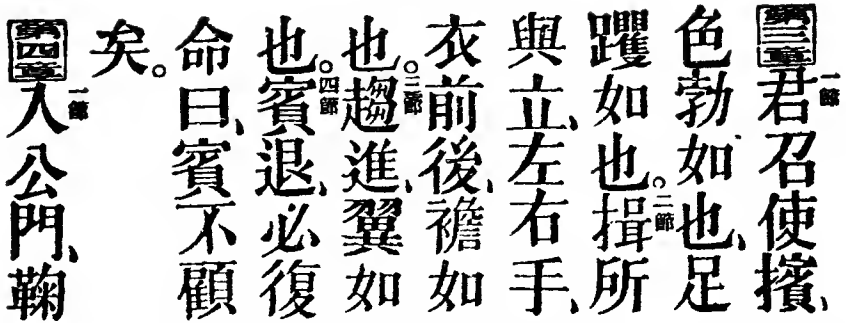 第三章一節君召使擯、
色勃如也、足
躩如也。二節揖所
與立、左右手、
衣前後、襜如
也。三節趨進、翼如
也。四節賓退、必復
命曰、賓不顧
矣。
第四章一節入公門、鞠